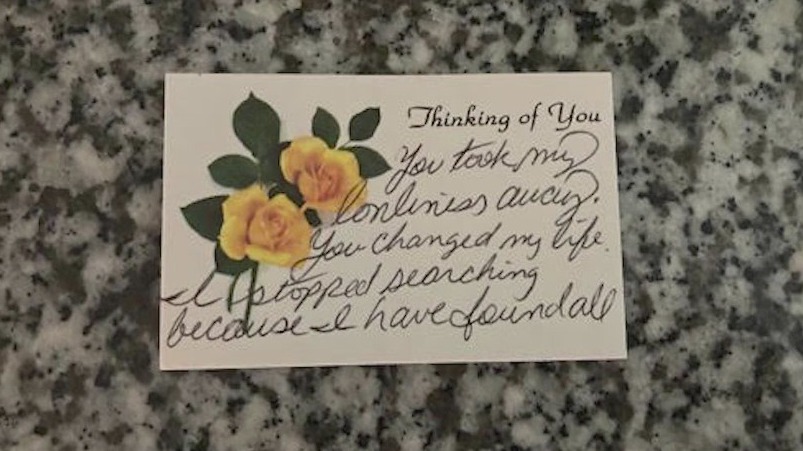 Thinking of You
You took my
lonliness away.
You changed my life.
I stopped searching
because I have found all